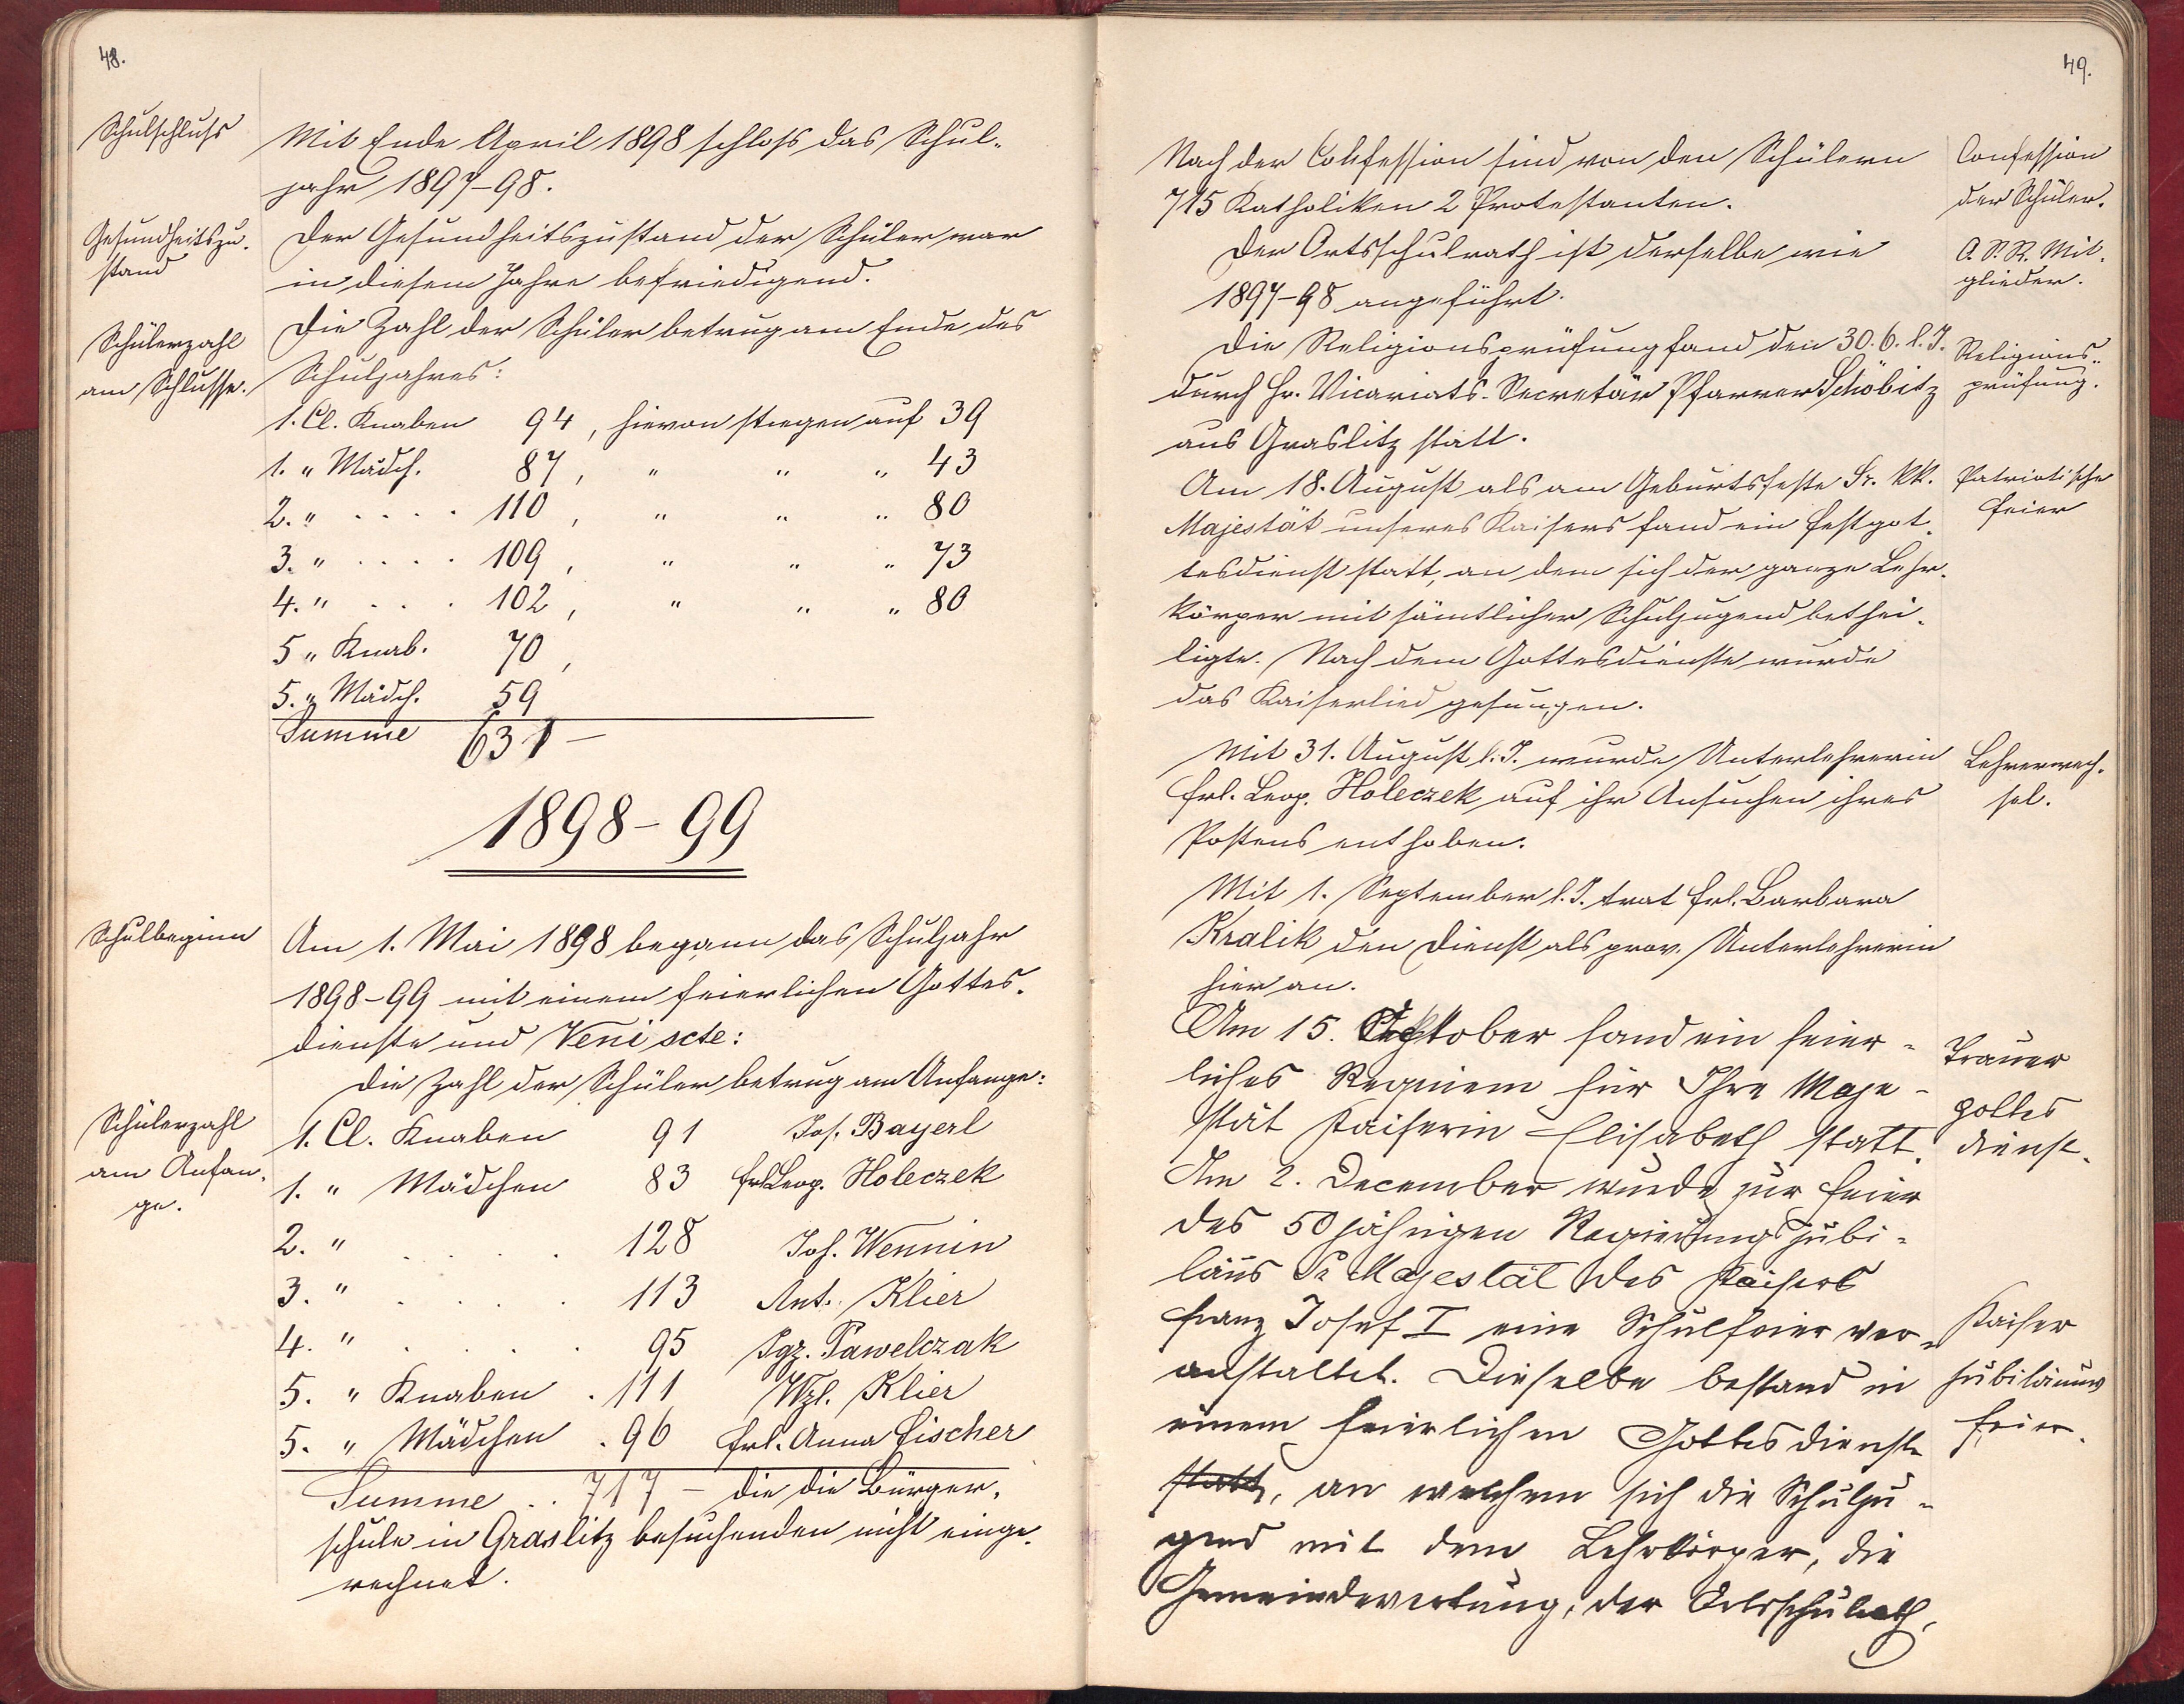 48.
Schulschluß
Mit Ende April 1898 schloß das Schul-
jahr 1897-98.
Gesundheitszu-
stand
Der Gesundheitszustand der Schüler war
in diesem Jahre befriedigend.
Schülerzahl
am Schlusse.
Die Zahl der Schüler betrug am Ende des
Schuljahres:
1. Cl. Knaben 94, hievon stiegen auf 39
1. " Mädch. 87, " " " 43
2. " . . . . 110, " " " 80
3. " . . . . 109, " " " 73
4. " . . . 102, " " " 80
5 " Knab. 70,
5. " Mädch. 59
Summe 631 –
1898-99
Schulbeginn
Am 1. Mai 1898 begann das Schuljahr
1898-99 mit einem feierlichen Gottes-
dienste und Veni scte:
Die Zahl der Schüler betrug am Anfange:
Schülerzahl
am Anfan-
ge.
1. Cl. Knaben 91 Jos. Bayerl
1. " Mädchen 83 Frl Leop. Holeczek
2. " . . . . 128 Joh. Wennin
3. " . . . . 113 Ant. Klier
4. " . . . . 95 Igz. Pawelczak
5. " Knaben . 111 Wzl. Klier
5. " Mädchen . 96 Frl. Anna Fischer
Summe . . 717 – die die Bürger-
schule in Graslitz besuchenden nicht einge-
rechnet.
49.
Nach der Confession sind von den Schülern
715 Katholiken 2 Protestanten.
Confession
der Schüler.
Der Ortsschulrath ist derselbe wie
1897-98 angeführt.
O. S. R. Mit-
glieder.
Die Religionsprüfung fand den 30. 6. l. J.
durch Hr. Vicariats-Secretär Pfarrer Schöbitz
aus Graslitz statt.
Religions-
prüfung.
Am 18. August als am Geburtsfeste Sr. kk.
Majestät unseres Kaisers fand ein Festgot-
tesdienst statt, an dem sich der ganze Lehr-
körper mit sämtlicher Schuljugend bethei-
ligte. Nach dem Gottesdienste wurde
das Kaiserlied gesungen.
Patriotische
Feier
Mit 31. August l. J. wurde Unterlehrerin
Frl. Leop. Holeczek auf ihr Ansuchen ihres
Postens enthoben.
Lehrerwech-
sel.
Mit 1. September l. J. trat Frl. Barbara
Kralik den Dienst als prov. Unterlehrerin
hier an.
Am 15. Oktober fand ein feier-
liches Requiem für Ihre Maje-
stät Kaiserin Elisabeth statt.
Trauer
gottes
dienst.
Am 2. December wurde zur Feier
des 50 jährigen Regierungsjubi-
läus Sr Majestät des Kaisers
Franz Josef I eine Schulfeier ver-
anstaltet. Dieselbe bestand in
einem feierlichen Gottesdienste
statt, an welchem sich die Schulju-
gend mit dem Lehrkörper, die
Gemeindevertung, der Ortsschulrath,
Kaiser
jubiläums
feier.